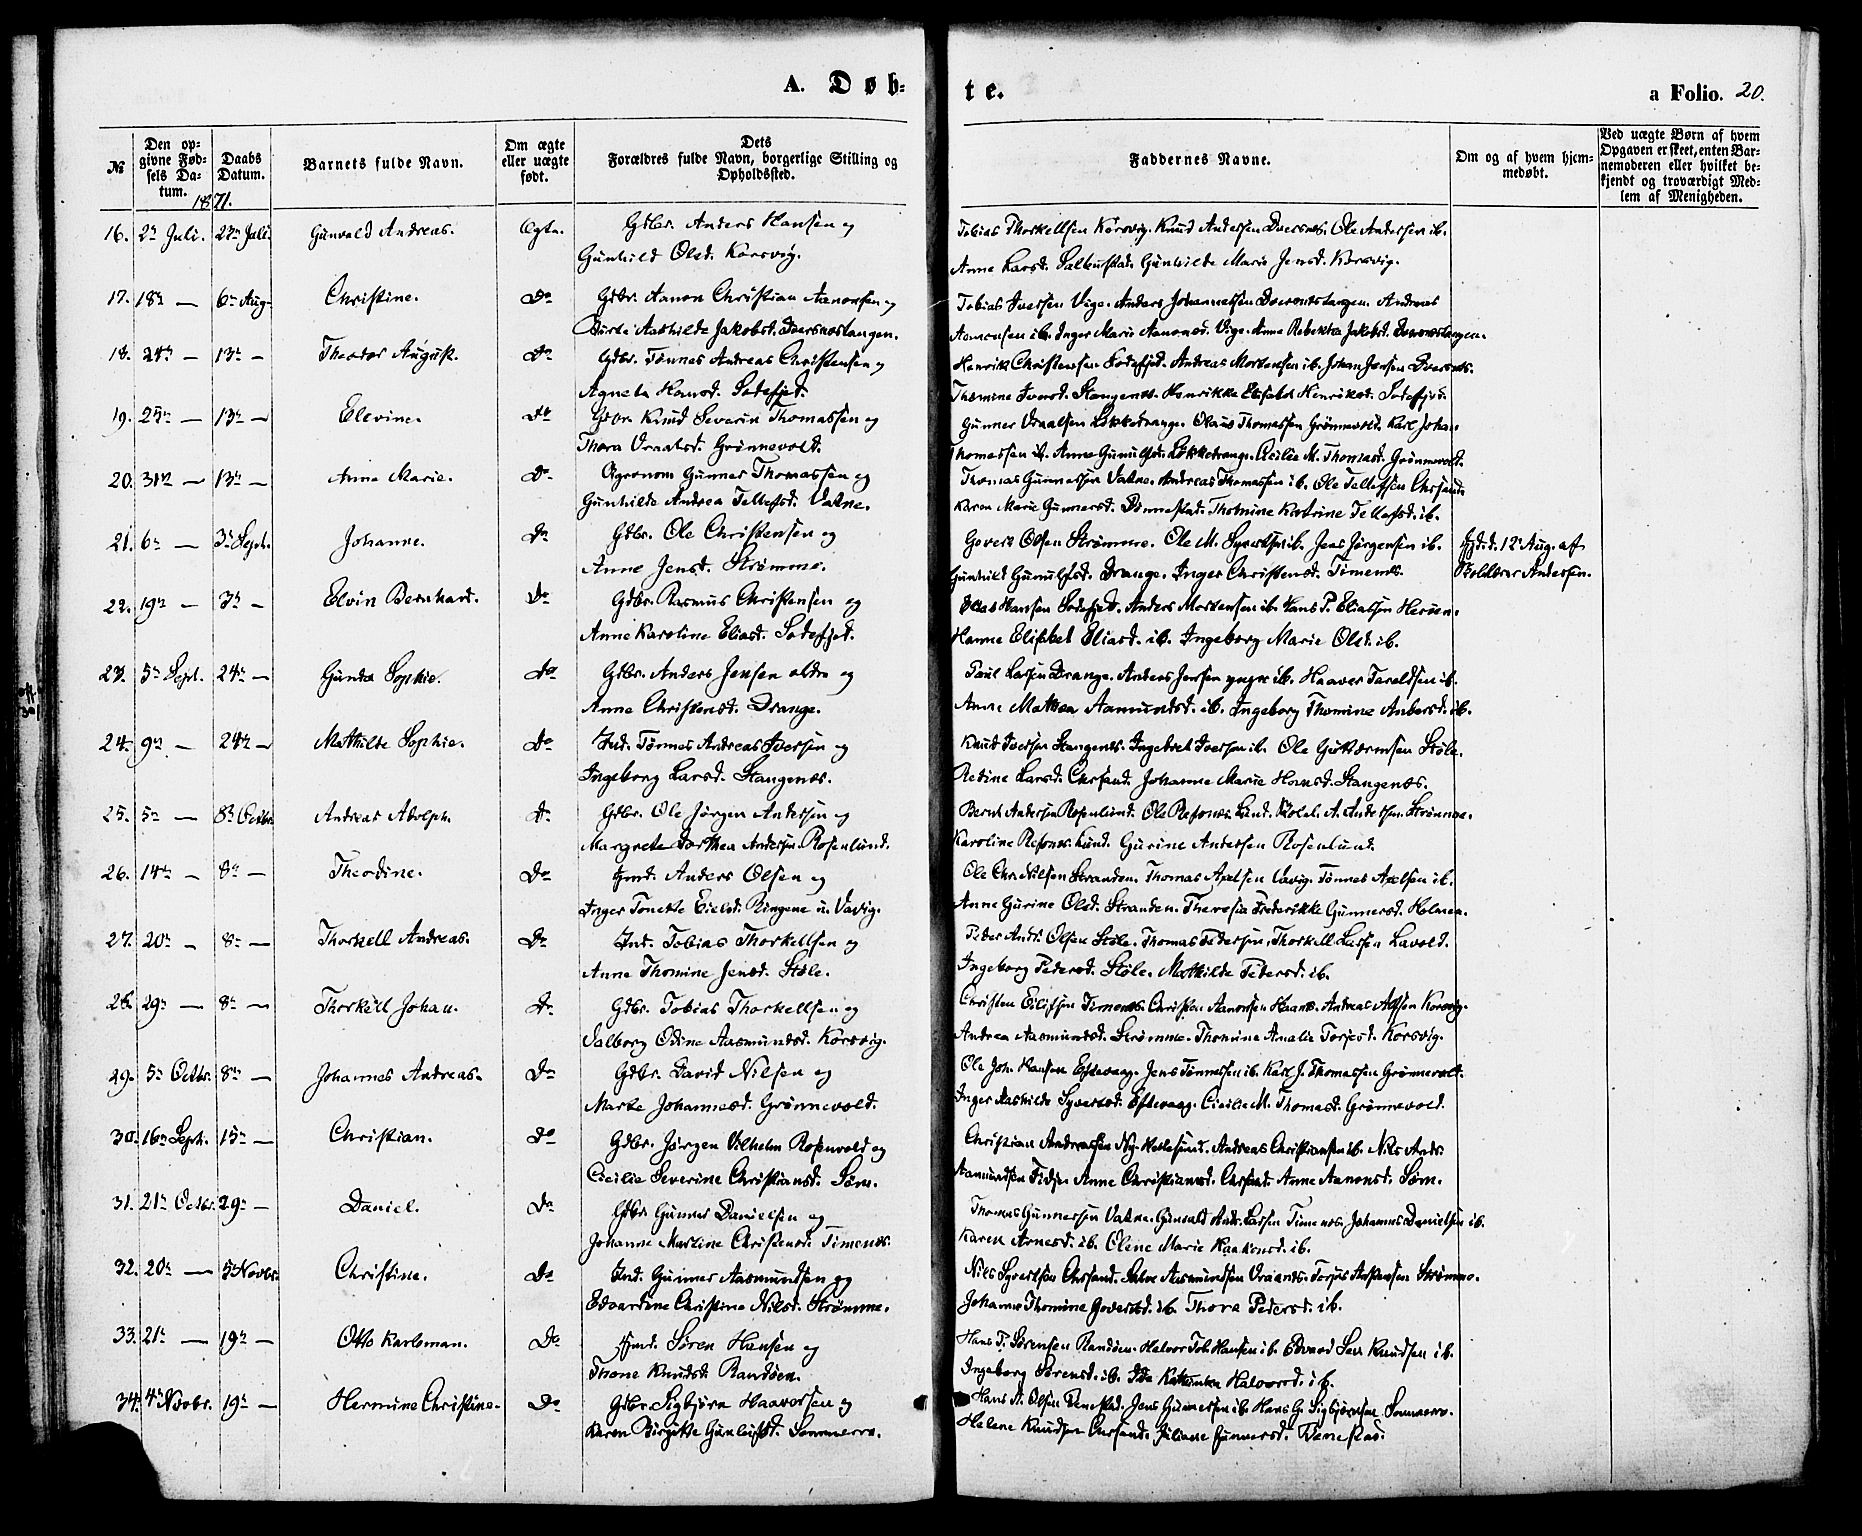 A. Døb-
te.
a Folio. 20.
№
Den opgivne Fødsels Datum.
1871.
Daabs Datum.
Barnets fulde Navn.
Om ægte eller uægte født.
Dets Forældres fulde Navn, borgerlige Stilling og Opholdssted.
Faddernes Navne.
Om og af hvem hjemmedøbt.
Ved uægte Børn af hvem Opgaven er skeet, enten Barnemoderen eller hvilket bekjendt og troværdigt Medlem af Menigheden.
16. 2n Juli. 23n Juli. Gunvald Andreas. Ægte. Gdbr. Anders Hansen og
Gunhild Olsd. Korsvig.
Tobias Thorkellsen Korsvig. Knud Andersen Dversnes. Ole Andersen ib.
Anne Larsd. Gunhilde Marie Jensd. Korsvig.
17. 18n — 6n Aug. Christine. Do Gdbr. Aanon Christian Aanonsen og
Berte Aashilde Jakobsd. Dversnestangen.
Tobias Iversen Vige. Anders Johannessen Dversnestangen. Andreas
Aanonsen ib. Inger Marie Aanonsd. Vige. Anne Rebekka Jakobsd. Dversnestangen.
18. 24n — 13n — Theodor August. Do Gdbr. Tønnes Andreas Christensen og
Agnete Hansd. Sodefjed.
Henrik Christensen Sodefjed. Andreas Mortensen ib. Johan Jensen Dversnes.
Thomine Iversd. Stangenes. Henrikke Elisabet Henriksd. Sodefjed.
19. 25n — 13n — Elevine. Do Gdbr. Knud Severin Thomassen og
Thora Vraalsd. Grønnevold.
Gunner Vraalsen Løkkedrange. Olaus Thomassen Grønnevold. Karl Johan
Thomassen ib. Anne Løkkedrange. Cecilie M. Thomasd. Grønnevold.
20. 31n — 13n — Anne Marie. Do Agronom Gunner Thomassen og
Gunhilde Andrea Tellefsd. Vatne.
Thomas Gunnersen Vatne. Andreas Thomassen ib. Ole Tellefsen Chrsand.
Karen Marie Gunnersd. Dønnestad. Thomine Katrine Tellefsd. ib.
21. 6n — 3n Sept. Johanne. Do Gdbr. Ole Christensen og
Anne Jensd. Strømme.
Govert Olsen Strømme. Ole M. Syvertsen ib. Jens Jørgensen ib.
Gunhild Gunulfsd. Drange. Inger Christensd. Timenes.
Hjd. d. 12 Aug. af
Skolelærer Andersen.
22. 19n — 3n — Elvin Bernhard. Do Gdbr. Rasmus Christensen og
Anne Karoline Eliasd. Sodefjed.
Elias Hansen Sodefjed. Anders Mortensen ib. Hans P. Eliassen
Hanne Elisabet Eliasd. ib. Ingeborg Marie Olsd. ib.
23. 5n Sept. 24n — Gunda Sophie. Do Gdbr. Anders Jensen ældre og
Anne Christensd. Drange.
Poul Larsen Drange. Anders Jensen yngre ib. Haaver Taraldsen ib.
Anne Mathea Aamundsd. ib. Ingeborg Thomine Andersd. ib.
24. 9n — 24n — Mathilde Sophie. Do Ind. Tønnes Andreas Iversen og
Ingeborg Larsd. Stangenes.
Knud Iversen Stangenes. Ingebret Iversen ib. Ole Guttormsen Støle.
Larsd. Chrsand. Johanne Marie Hansd. Stangenes.
25. 5n — 8n Octbr. Andreas Adolph. Do Gdbr. Ole Jørgen Andersen og
Margrete Dorthea Andersen Rosenlund.
Bernt Andersen Rosenlund. Ole Refsnes Lund. A. Andersen Strømme.
Karoline Refsnes Lund. Gurine Andersen Rosenlund.
26. 14n — 8n — Theodine. Do Hmd. Anders Olsen og
Inger Tonette Eielsd. Ringene u. Vavig.
Ole Chr. Nilsen Stranden. Thomas Axelsen Vavig. Tønnes Axelsen ib.
Anne Gurine Olsd. Stranden. Theresia Frederikke Gunnersd. Holmen.
27. 20n — 8n — Thorkell Andreas. Do Ind. Tobias Thorkellsen og
Anne Thomine Jensd. Støle.
Peder Andr. Olsen Støle. Thomas Pedersen. Thorkell Larsen Lavold.
Ingeborg Pedersd. Støle. Mathilde Pedersd. ib.
28. 29n — 8n — Thorkell Johan. Do Gdbr. Tobias Thorkellsen og
Valborg Odine Aasmundsd. Korsvig.
Christen Eilifsen Timenes. Christen Aanonsen Haanes. Andreas Korsvig.
Andrea Aasmundsd. Strømme. Thomine Amalie Torjusd. Korsvig.
29. 5n Octbr. 8n — Johannes Andreas. Do Gdbr. David Nilsen og
Marte Johannesd. Grønnevold.
Ole Joh. Hansen Eftevaag. Jens Tønnessen ib. Karl J. Thomassen Grønnevold.
Inger Aashilde Syvertsd. Eftevaag. Cicilie M. Thomasd. Grønnevold.
30. 16n Sept. 15n — Christian. Do Gdbr. Jørgen Vilhelm Rosenvold og
Cicilie Severine Christiansd. Søm.
Christian Andreassen Ny-Hellesund. Andreas Christiansen ib. Nils Andr.
Aamundsen Anne Christiansd. Chrsand. Anne Aanonsd. Søm.
31. 21n Octbr. 29n — Daniel. Do Gdbr. Gunner Danielsen og
Johanne Martine Christensd. Timenes.
Thomas Gunnersen Vatne. Gunvald Andr. Larsen Timenes. Johannes Danielsen ib.
Karen Arnesd. ib. Olene Marie ib.
32. 20n — 5n Novbr. Christine. Do Ind. Gunner Aasmundsen og
Edvardine Christine Nilsd. Strømme.
Nils Syvertsen Chrsand. Salve Aasmundsen Vraanes. Torjus Strømme.
Johanne Thomine Govertsd. ib. Thora Pedersd. ib.
33. 21n — 19n — Otto Karloman. Do Hmd. Søren Hansen og
Thone Knudsd. Randøen.
Hans T. Sørensen Randøen. Halvor Tob. Hansen ib. Edvard Sev. Knudsen ib.
Ingeborg Sørensd. ib. Ida Kathinka Halvorsd. ib.
34. 4n Novbr. 19n — Hermine Christine. Do Gdbr. Sigbjørn Haaversen og
Karen Birgitte Gunleifsd. Sommerro.
Hans A. Olsen Jens Gunnersen ib. Hans G. Sigbjørnsen Sommerro.
Helene Knudsen Chrsand. Juliane Gunnersd.